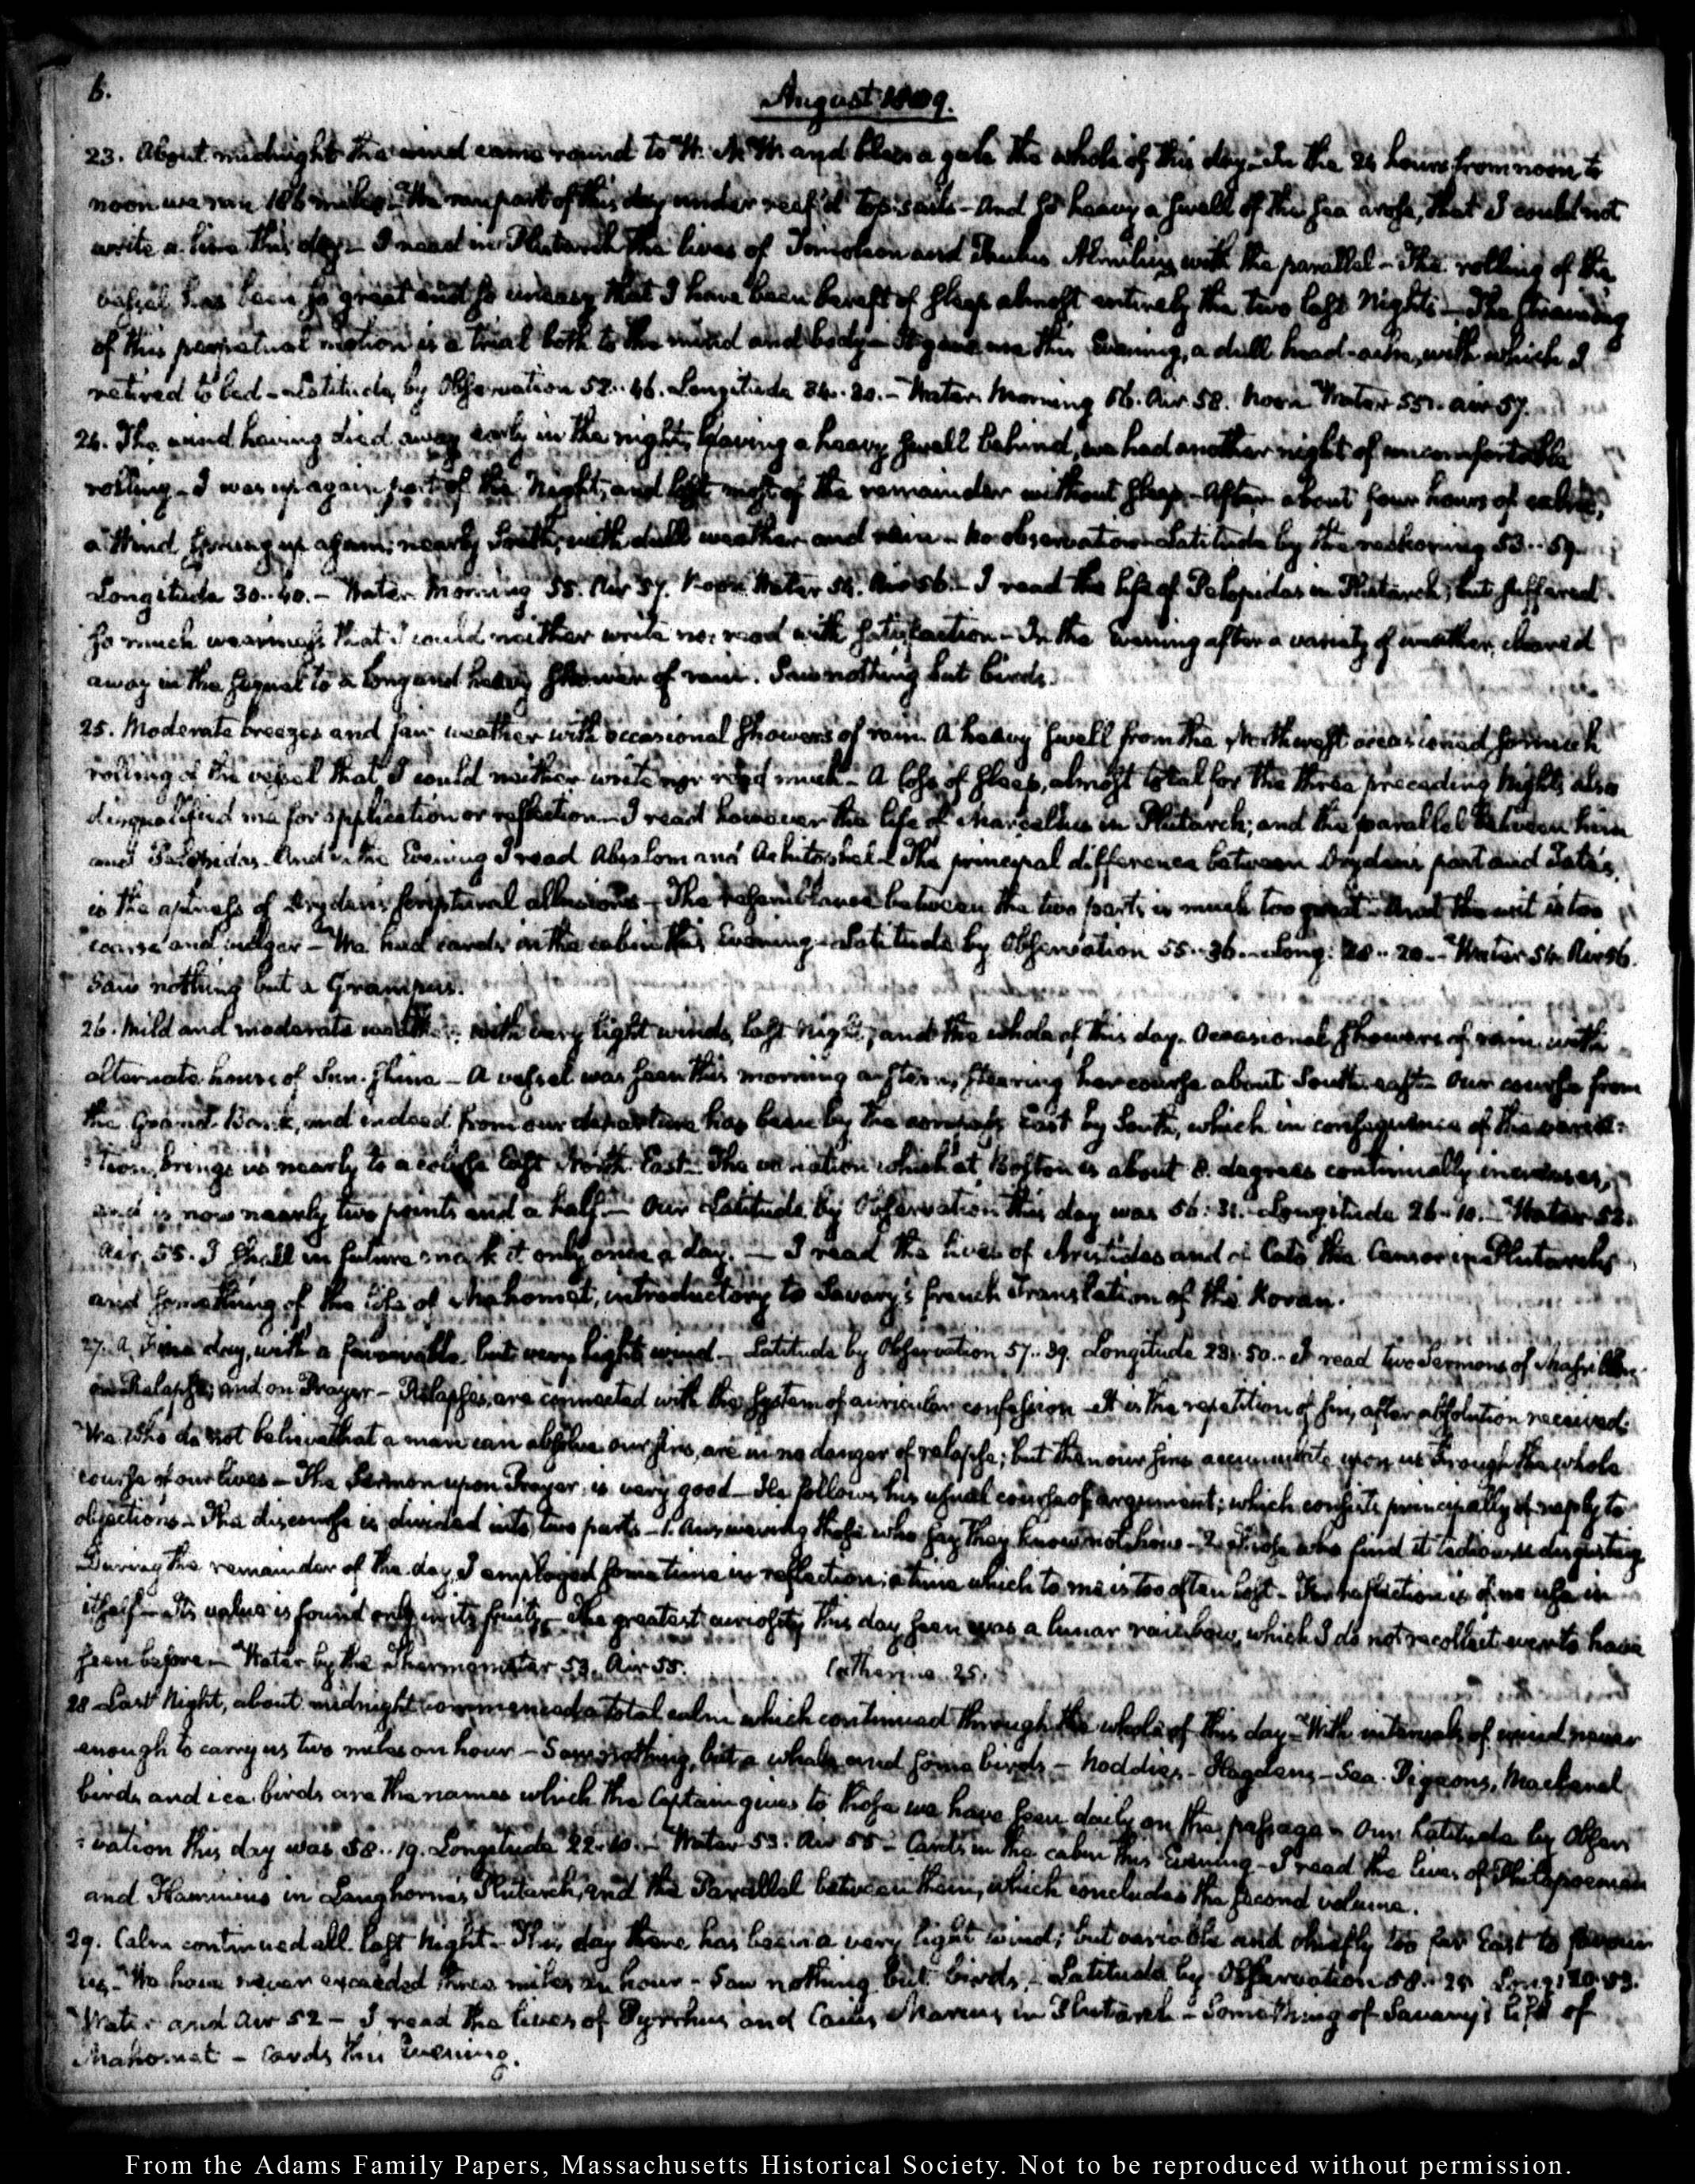 6.
August 1809.
23. About midnight the wind came round to W. N. W. and blew a gale the whole of this day. In the 24 hours from noon to
noon we run 186 miles. We ran part of this day under reef'd top-sails - And so heavy a swell of the sea arose, that I could not
write a line this day - I read in Plutarch the lives of Timoleon and Paulus Æmilius with the parallel - The rolling of the
vessel has been so great and so uneasy that I have been bereft of sleep almost entirely the two last Nights - The straining
of this perpetual motion is a trial both to the mind and body - It gave me this Evening, a dull head-ache, with which I
retired to bed - Latitude, by Observation 52..46. Longitude 34..20. - Water. Morning 56. Air 58. Noon Water 55. air 57.
24. The wind having died away early in the night, leaving a heavy swell behind, we had another night of uncomfortable
rolling - I was up again part of the Night, and left most of the remainder without sleep - After about four hours of calm,
a Wind sprung up again, nearly South, with dull weather and rain - No observation - Latitude by the reckoning 53..59.
Longitude 30..40. - Water. Morning 55. Air 57. Noon Water 54. Air 56. - I read the life of Pelopidas in Plutarch; but suffered
so much weariness that I could neither write nor read with satisfaction - In the Evening after a variety of weather, cleared
away in the sequel to a long and heavy shower of rain. Saw nothing but birds.
25. Moderate breezes and fair weather with occasional showers of rain. A heavy swell from the Northwest occasioned so much
rolling of the vessel that I could neither write nor read much - A loss of sleep, almost total for the three preceding Nights also
disqualified me for application or reflection - I read however the life of Marcellus in Plutarch; and the parallel between him
and Pelopidas. And in the Evening I read Absalom and Achitophel - The principal difference between Dryden's part and Tate's,
is the aptness of Dryden's scriptural allusions - The resemblance between the two parts is much too great - And the wit is too
coarse and vulgar - We had cards in the cabin this Evening - Latitude by Observation 55..36. Long: 28..20. - Water 54. Air 56.
Saw nothing but a Grampus.
26. Mild and moderate weather, with very light winds, last Night, and the whole of this day. Occasional showers of rain with
alternate hours of Sun-shine - A vessel was seen this morning astern, steering her course about South-east - Our course from
the Grand Bank, and indeed from our departure has been by the compass East by South, which in consequence of the varia-
:tion, brings us nearly to a course East North East - The variation which at Boston is about 8. degrees continually increases,
and is now nearly two points and a half - Our Latitude by Observation this day was 56: 31. Longitude 26..10. - Water 53.
Air, 55. I shall in future mark it only once a day. - I read the lives of Aristides and of Cato the Censor in Plutarch,
and something of the life of Mahomet, introductory to Savary's french Translation of the Koran.
27. A fine day, with a favourable, but very light wind - Latitude by Observation 57..39. Longitude 23..50. - I read two Sermons of Massillon
on Relapse; and on Prayer - Relapses, are connected with the system of auricular confession - It is the repetition of sin, after absolution received.
We who do not believe that a man can absolve our sins, are in no danger of relapse; but then our sins accumulate upon us through the whole
course of our lives - The Sermon upon Prayer, is very good - He follows his usual course of argument; which consists principally of reply to
objections - The discourse is divided into two parts - 1. Answering those who say they know not how - 2. Those who find it tedious & disgusting
During the remainder of the day, I employed some time in reflection; a time which to me is too often lost - For reflection is of no use in
itself - Its value is found only in its fruits - The greatest curiosity this day seen was a lunar rainbow, which I do not recollect ever to have
seen before - Water by the Thermometer 53. Air 55. Catherine. 25.
28 Last Night, about midnight commenced a total calm which continued through the whole of this day - With intervals of wind never
enough to carry us two miles an hour - Saw nothing, but a whale and some birds - Noddies - Hagdens - Sea-Pigeons, Mackerel
birds and ice birds are the names which the Captain gives to those we have seen daily on the passage - Our Latitude by Obser-
:vation this day was 58..19. Longitude 22..10. - Water 53. Air 55 - Cards in the cabin this Evening - I read the lives of Philopoemen
and Flaminius in Langhorne's Plutarch, and the Parallel between them, which concludes the second volume.
29. Calm continued all last Night - This day there has been a very light wind; but variable and chiefly too far East to favour
us - We have never exceeded three miles an hour - Saw nothing but birds, - Latitude by Observation 58..25 Long: 20..53.
Water and Air 52 - I read the lives of Pyrrhus and Caius Marius in Plutarch - Something of Savary's life of
Mahomet - Cards this Evening.
From the Adams Family Papers, Massachusetts Historical Society. Not to be reproduced without permission.